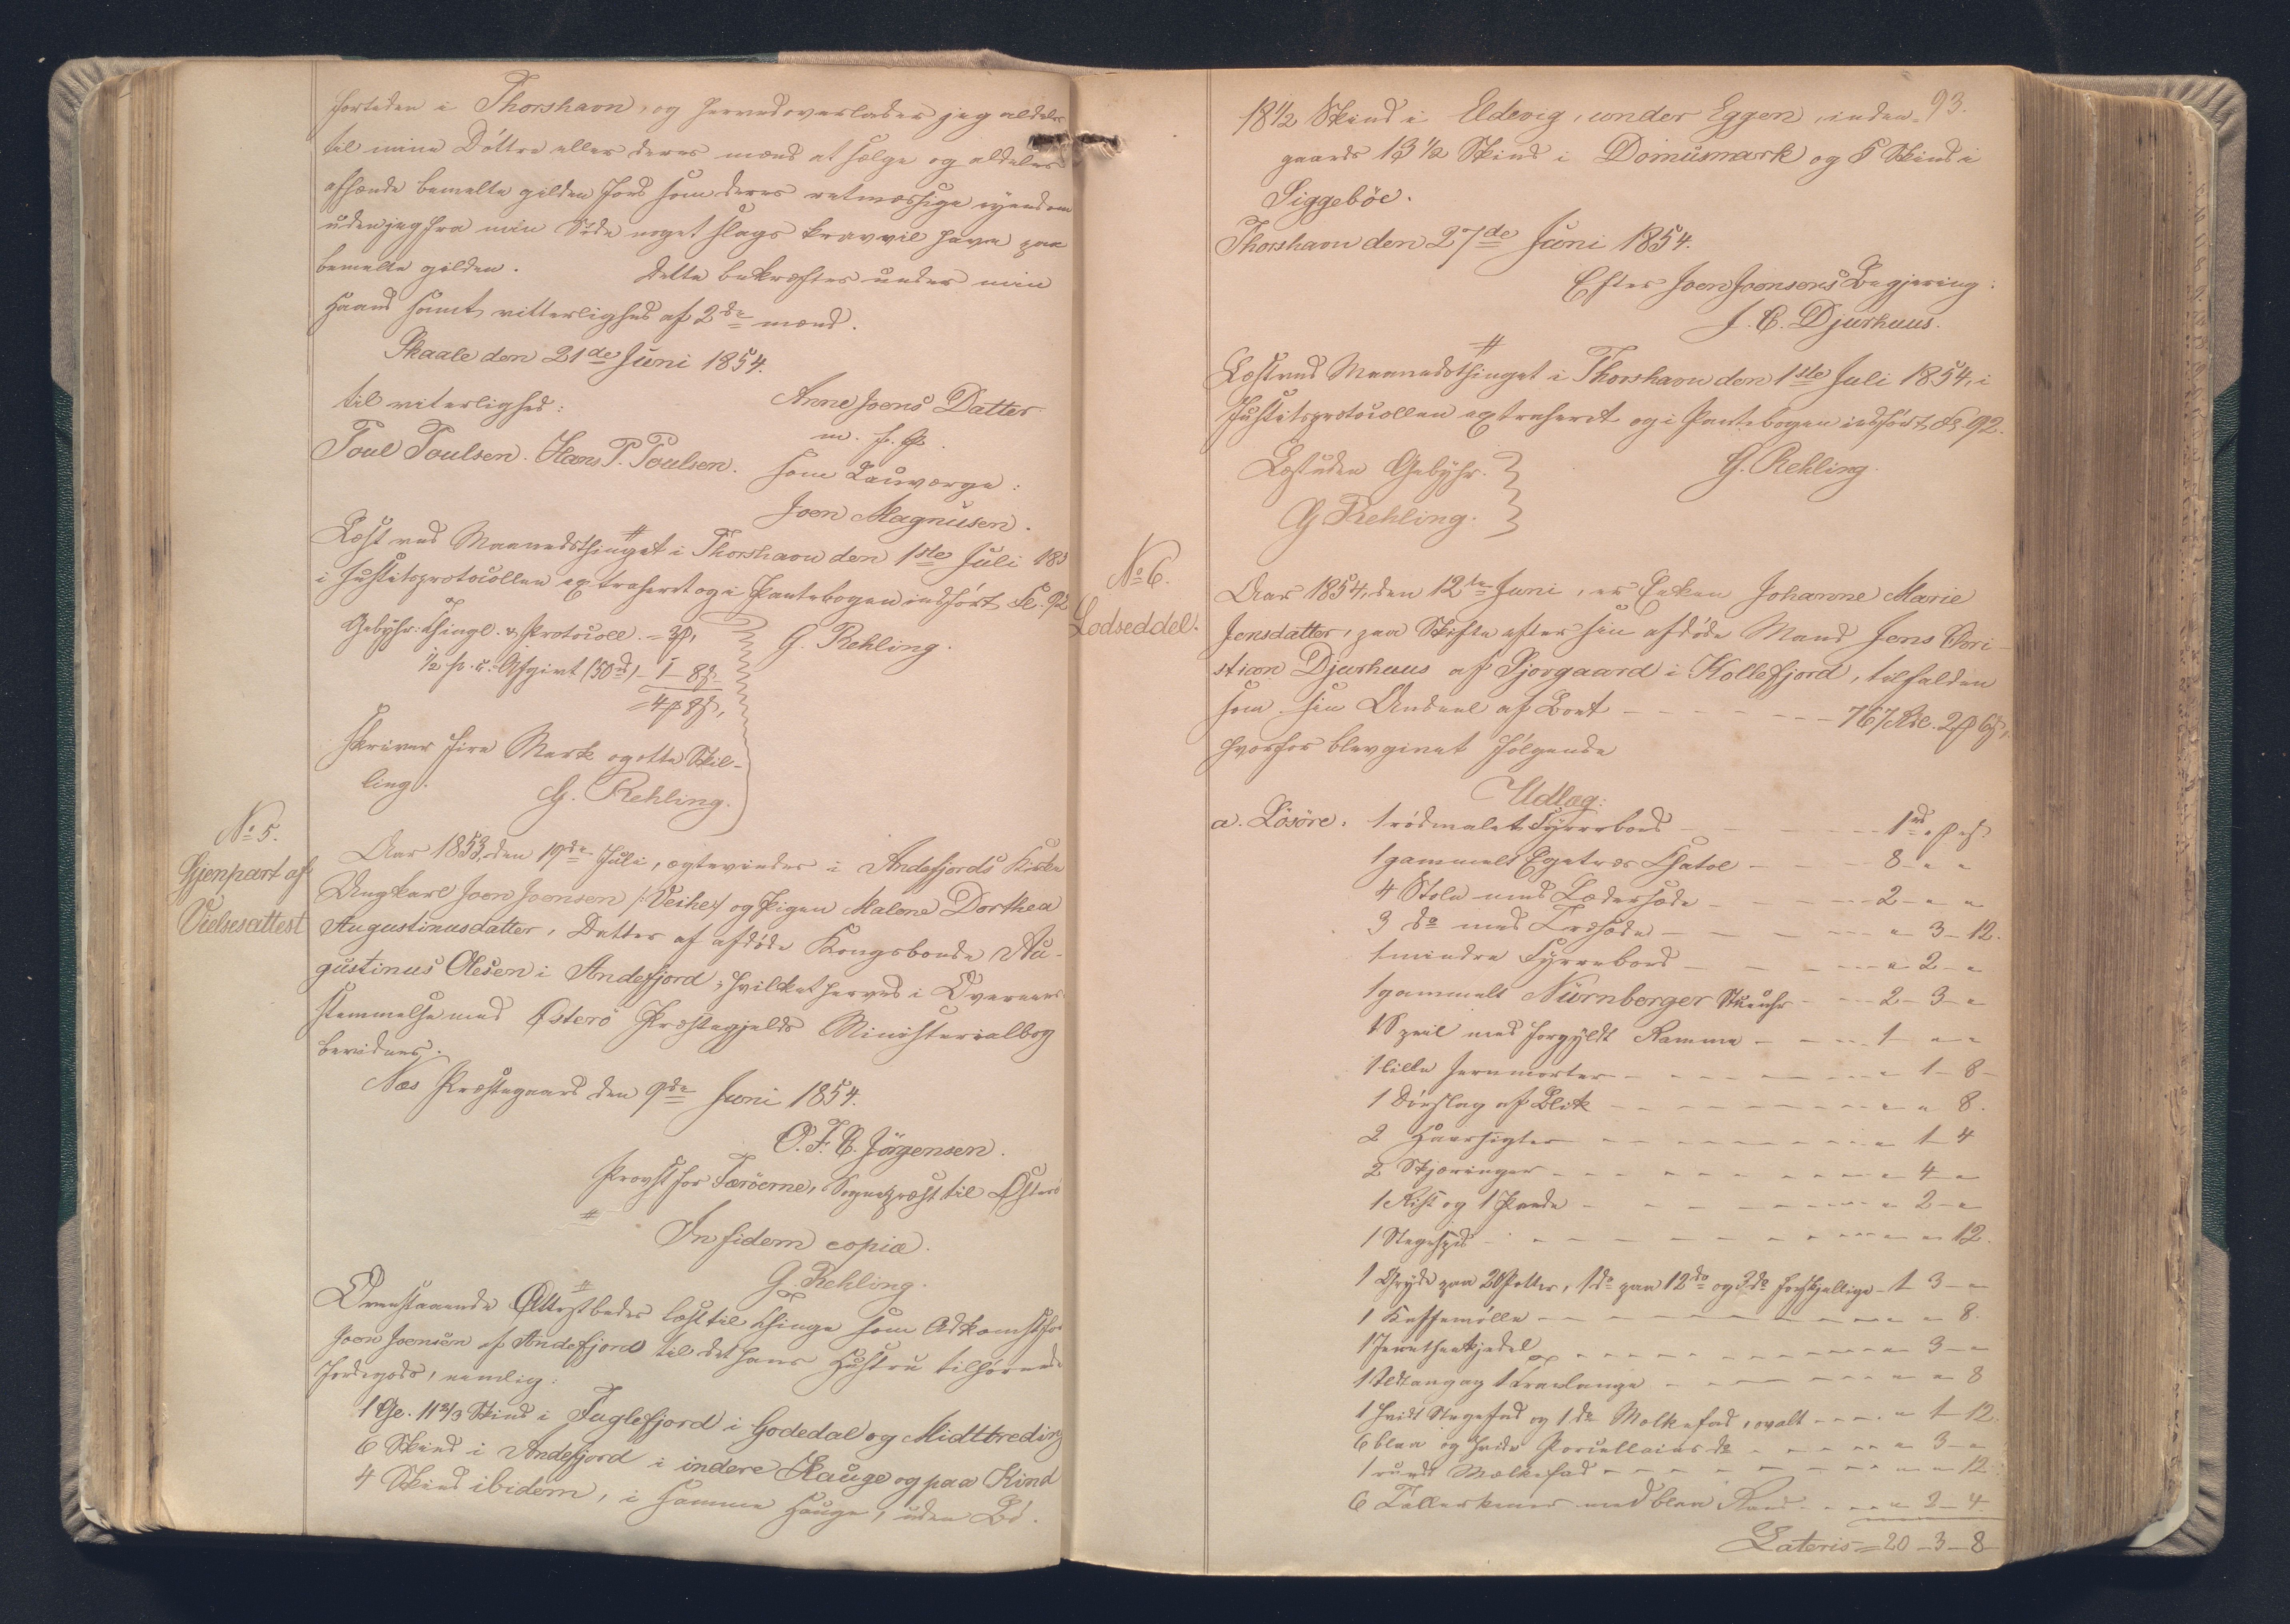 fortiden i Thorshavn, og herved overlader jeg aldeles
til mine Döttre eller deres mænd at sælge og aldeles
afhænde bemelte gilden Jord som deres retmæssige eyendom
uden jeg fra min Side noget slags krav vil have paa
bemelte gilden. Dette bekræftes under min
Haand samt vitterlighed af 2de mænd.
Skaale den 21de Juni 1854.
til viterlighed: Anne Joens Datter
m. f. P.
Poul Poulsen. Hans P. Poulsen. som Lauværge:
Joen Magnusen.
Læst ved Maanedsthinget i Thorshavn den 1ste Juli 185
i Justitsprotocollen extraheret og i Pantebogen indfört Fol. 92
Gebyhr: Thingl. & Protocoll. = 3₰,
½ p. c. Afgivt (50rd) - 1 - 8ß
= 4₰ 8ß,
G. Rehling.
skriver fire Mark og otte Skil-
ling.
G. Rehling.
No 5.
Gjenpart af
Vielsesattest
Aar 1853, den 19de Juli, ægteviedes i Andefjords Kirke
Ungkarl Joen Joensen /:Veihe:/ og Pigen Malene Dorthea
Augustinusdatter, Datter af afdöde Kongsbonde Au-
gustinus Olesen i Andefjord; hvilket herved i Overeens-
stemmelse med Österö Præstegjelds Ministerialbog
bevidnes.
Næs Præstegaard den 9de Juni 1854.
O. F. C. Jörgensen.
Provst for Færöerne, Sognepræst til Österö
In fidem copiæ.
G. Rehling.
Ovenstaaende Attest bedes læst til Thinge som Adkomst for
Joen Joensen af Andefjord til det hans Hustru tilhörende
Jordegods, nemlig:
1 Ge. 11 2/3 Skind i Fuglefjord i Godedal og Midttreding
6 Skind i Andefjord i indere Hauge og paa Kind
4 Skind ibidem, i samme Hauge, uden Bö.
93.
18½ Skind i Eldevig, under Eggen, inden-
gaards 13½ Skind i Domüsmark og 5 Skind i
Siggeböe.
Thorshavn den 27de Juni 1854.
Efter Joen Joensens Begjering:
J. C. Djurhuus.
Læst ved Maanedsthinget i Thorshavn den 1ste Juli 1854, i
Justitsprotocollen extraheret og i Pantebogen indfört Fol. 92.
Læst uden Gebyhr. G. Rehling.
G Rehling.
No 6.
Lodseddel.
Aar 1854, den 12te Juni, er Enken Johanne Marie
Jensdatter, paa Skifte efter sin afdöde Mand Jens Chri-
stian Djurhuus af Sjovgaard i Kollefjord, tilfalden
som sin Andeel af Boet - - - 767 Rdl. 2₰ 6ß,
hvorfor blev givet fölgende
Udlæg:
a. Lösöre. 1 rödmalet Fyrrebord - - - 1rd „₰ „ß
1 gammelt Egetræs Chatol - - - 8 „ „
4 Stole med Lædersæde - - - 2 - „ „
3 do med Træsæde - - - „ 3 - 12.
1 mindre Fyrrebord - - - „ 2 - „
1 gammelt Nürnberger Stueuhr - - - 2 - 3 - „
1 Speil med forgyldt Ramme - - - 1 „ „
1 lille Jernmorter - - - „ 1 - 8 -
1 Dörslag af Blik - - - „ „ 8.
2 Haarsigter - - - „ 1 4
2 Skjæringer - - - „ 4 - „
1 Rist og 1 Pande - - - „ 2 - „
1 Stegespid - - - „ „ 12.
1 Gryde paa 20 Potter, 1 do paa 12 do og 3 do forskjellige - 1 3 - „
1 Kaffemölle - - - „ „ 8.
1 Jerntheekjedel - - - „ 3 - „
1 Ildtang og 1 Tranlampe - - - „ „ 8
1 hvidt Stegefad og 1 do Melkefad, ovalt - - - „ 1 - 12.
6 blaa og hvide Porcellains do - - - „ 3 - „
1 rundt Melkefad - - - „ „ 12.
6 Tallerkener med blaa Rand - - - „ 2 - 4
Lateris = 20 - 3 - 8